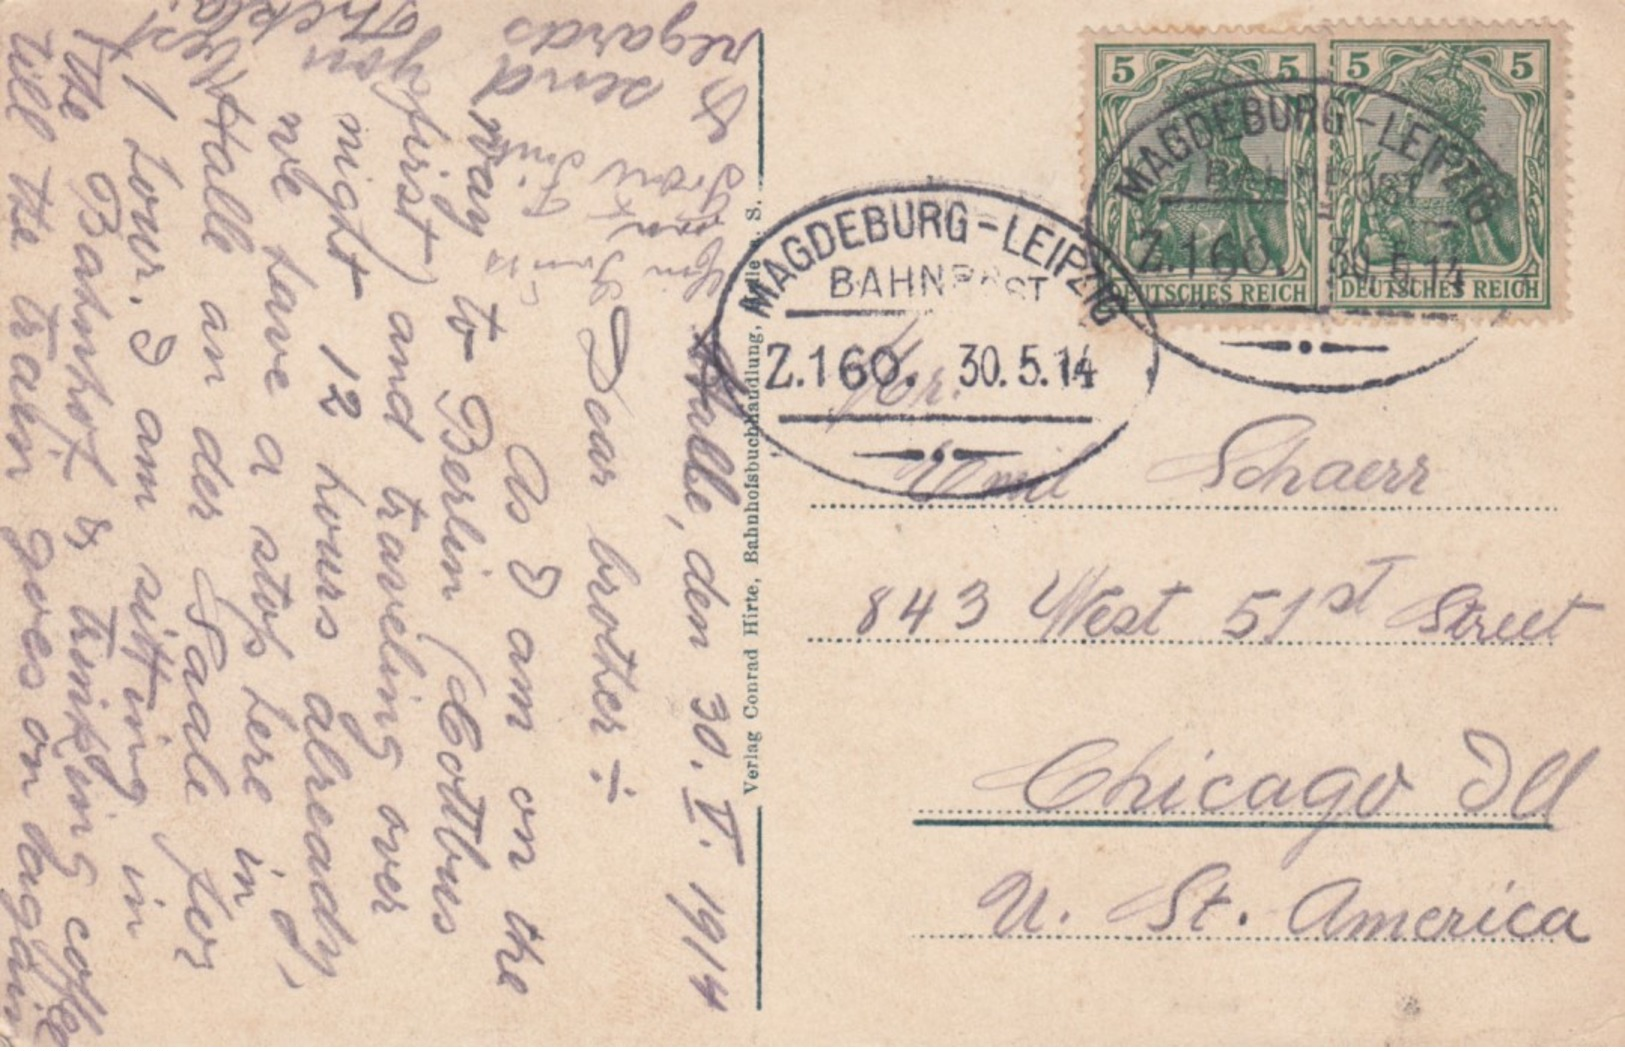 Halle, den 30. V. 1914
Dear brother ÷
As I am on the
way to Berlin (Cottbus
first) and traveling over
night 12 hours already,
we have a stop here in
Halle an der Saale for
1 hour. I am sitting in
the Bahnhof & trinking coffee
till the train goes on dagain
Best
regards
send
you
Thekla
Verlag Conrad Hirte, Bahnhofsbuchhandlung, Halle a. S.
5 5
DEUTSCHES REICH
5 5
DEUTSCHES REICH
MAGDEBURG-LEIPZIG
BAHNPOST
Z.160. 30.5.14
MAGDEBURG-LEIPZIG
BAHNPOST
Z.160. 30.5.14
Hr.
Emil Schaerr
843 West 51st Street
Chicago Ill
U. St. America